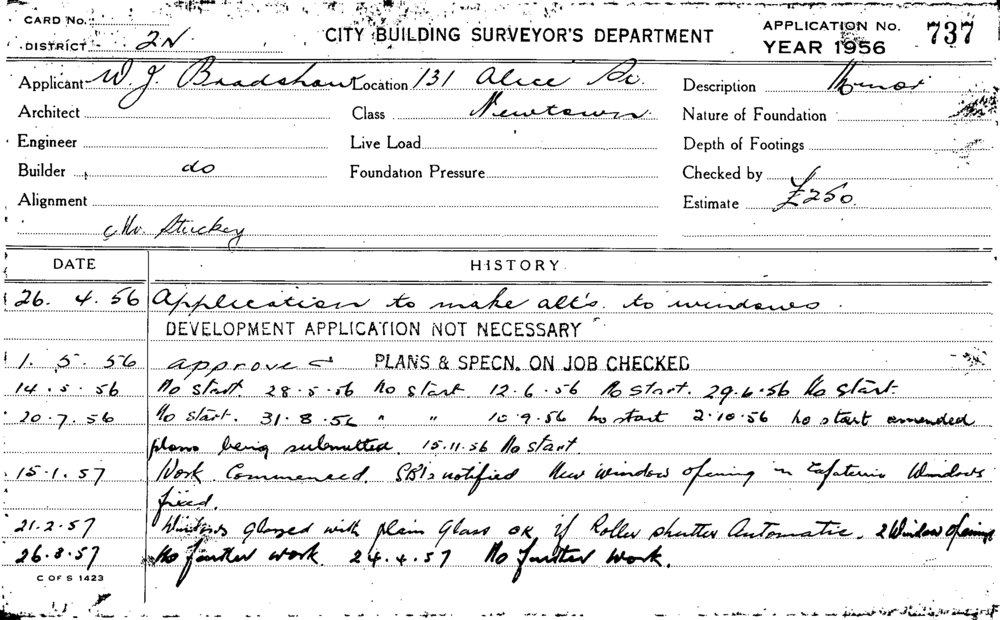 CARD No.
DISTRICT 2N
CITY BUILDING SURVEYOR'S DEPARTMENT
APPLICATION No. 737
YEAR 1956
Applicant W. J. Bradshaw Location 131 Alice St. Description Minor
Architect Class Newtown Nature of Foundation
Engineer Live Load Depth of Footings
Builder do Foundation Pressure Checked by
Alignment Estimate £250
Mr. Stuckey
DATE HISTORY
26. 4. 56 Application to make alt's. to windows.
DEVELOPMENT APPLICATION NOT NECESSARY
1. 5. 56 approved PLANS & SPECN. ON JOB CHECKED
14. 5. 56 No start. 28.5.56 No start. 12.6.56 No start. 29.6.56 No start.
20.7.56 No start. 31.8.56 " " 10.9.56 No start 2.10.56 No start amended
plans being submitted. 15.11.56 No start
15.1.57 Work Commenced. notified New window opening in Windows
fixed.
21.2.57 Windows glazed with plain Glass OK if Roller shutter Automatic. 2 Window openings
26.3.57 No further work. 24.4.57 No further work.
C OF S 1423